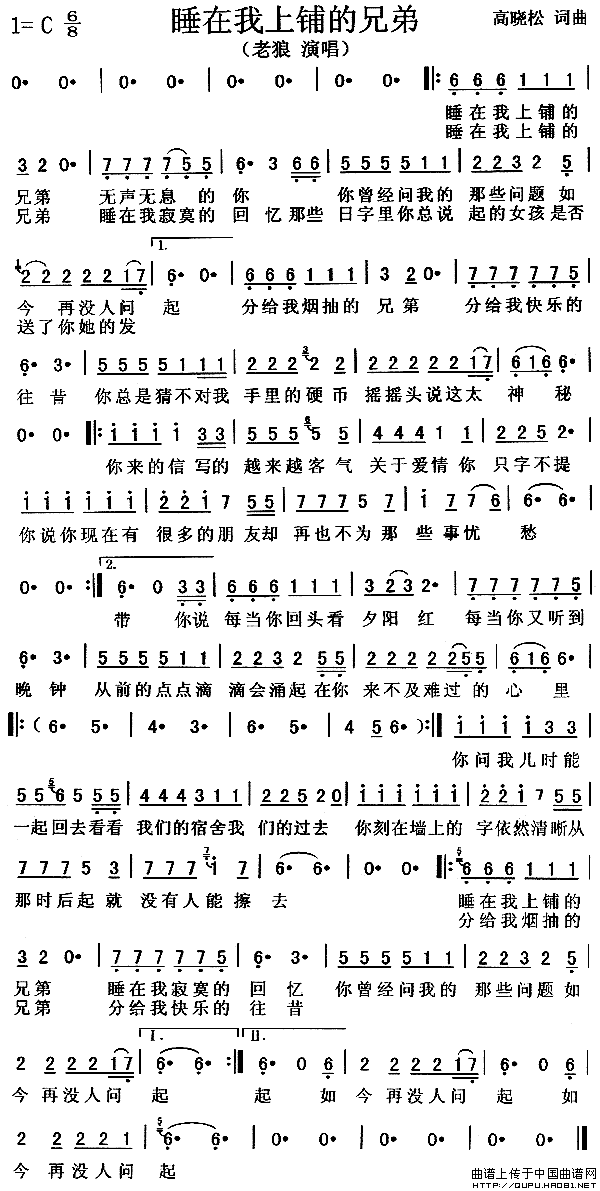 1=C 6/8 睡在我上铺的兄弟 高晓松 词曲
（老狼 演唱）
0· 0· | 0· 0· | 0· 0· | 0· 0· |: 6 6 6 1 1 1 |
睡在我上铺的
睡在我上铺的
3 2 0· | 7 7 7 7 5 5 | 6· 3 6 6 | 5 5 5 5 1 1 | 2 2 2 3 2 5 |
兄第 无声无息 的你 你曾经问我的 那些问题 如
兄弟 睡在我寂寞的 回 忆那些 日字里你总说 起的女孩是否
1.
2 2 2 2 2 1 7 | 6· 0· | 6 6 6 1 1 1 | 3 2 0· | 7 7 7 7 7 5 |
今 再没人问 起 分给我烟抽的 兄 第 分给我快乐的
送了你她的发
6· 3· | 5 5 5 5 1 1 1 | 2 2 2 2 2 | 2 2 2 2 2 1 7 | 6 1 6 6· |
往 昔 你总是猜不对我 手里的硬 币 摇摇头说这太 神 秘
0· 0· |: i i i i 3 3 | 5 5 5 5 5 | 4 4 4 4 1 1 | 2 2 5 2· |
你来的信 写的 越来越客 气 关于爱情 你 只字不提
i i i i i i | 2 2 i 7 5 5 | 2 2 2 3 5 | i 7 7 6 | 6· 6· |
你说你现在有 很多的朋友却 再也不为 那 些事忧 愁
2.
0· 0· :| 6· 0 3 3 | 6 6 6 1 1 1 | 3 2 3 2· | 7 7 7 7 7 5 |
带 你说 每当你回头看 夕阳 红 每当你又听到
6· 3· | 5 5 5 5 1 1 | 2 2 3 2 5 5 | 2 2 2 2 2 5 5 | 6 1 6 6· |
晚 钟 从前的点点滴 滴会涌起 在你 来不及难过 的 心 里
|:（ 6· 5· | 4· 3· | 6· 5· | 4 5 6· ）:| i i i i 3 3 |
你问我儿时能
5 5 6 5 5 5 | 4 4 4 3 1 1 | 2 2 5 2 0 | i i i i i i | 2 2 i 7 5 5 |
一起回去看看 我们的宿舍我 们的过去 你刻在墙上的 字依然清晰从
7 7 7 5 3 | 7 7 7 i 7 | 6· 6· | 0· 0· |: 6 6 6 1 1 1 |
那时后起 就 没有人能 擦 去 睡在我上铺的
分给我烟抽的
3 2 0· | 7 7 7 7 7 5 | 6· 3· | 5 5 5 5 1 1 | 2 2 3 2 5 |
兄第 睡在我寂寞的 回 忆 你曾经问我的 那些问题 如
兄第 分给我快乐的 往 昔
I. II.
2 2 2 2 1 7 | 6· 6· :| 6· 0 6 | 2 2 2 2 1 7 | 6· 0 6 |
今 再没人问 起 起 如 今 再没人问 起 如
2 2 2 2 1 | 6· 6· | 0· 0· ‖
今 再没人问 起
曲谱上传于中国曲谱网
HTTP://QUPU.HAO81.NET